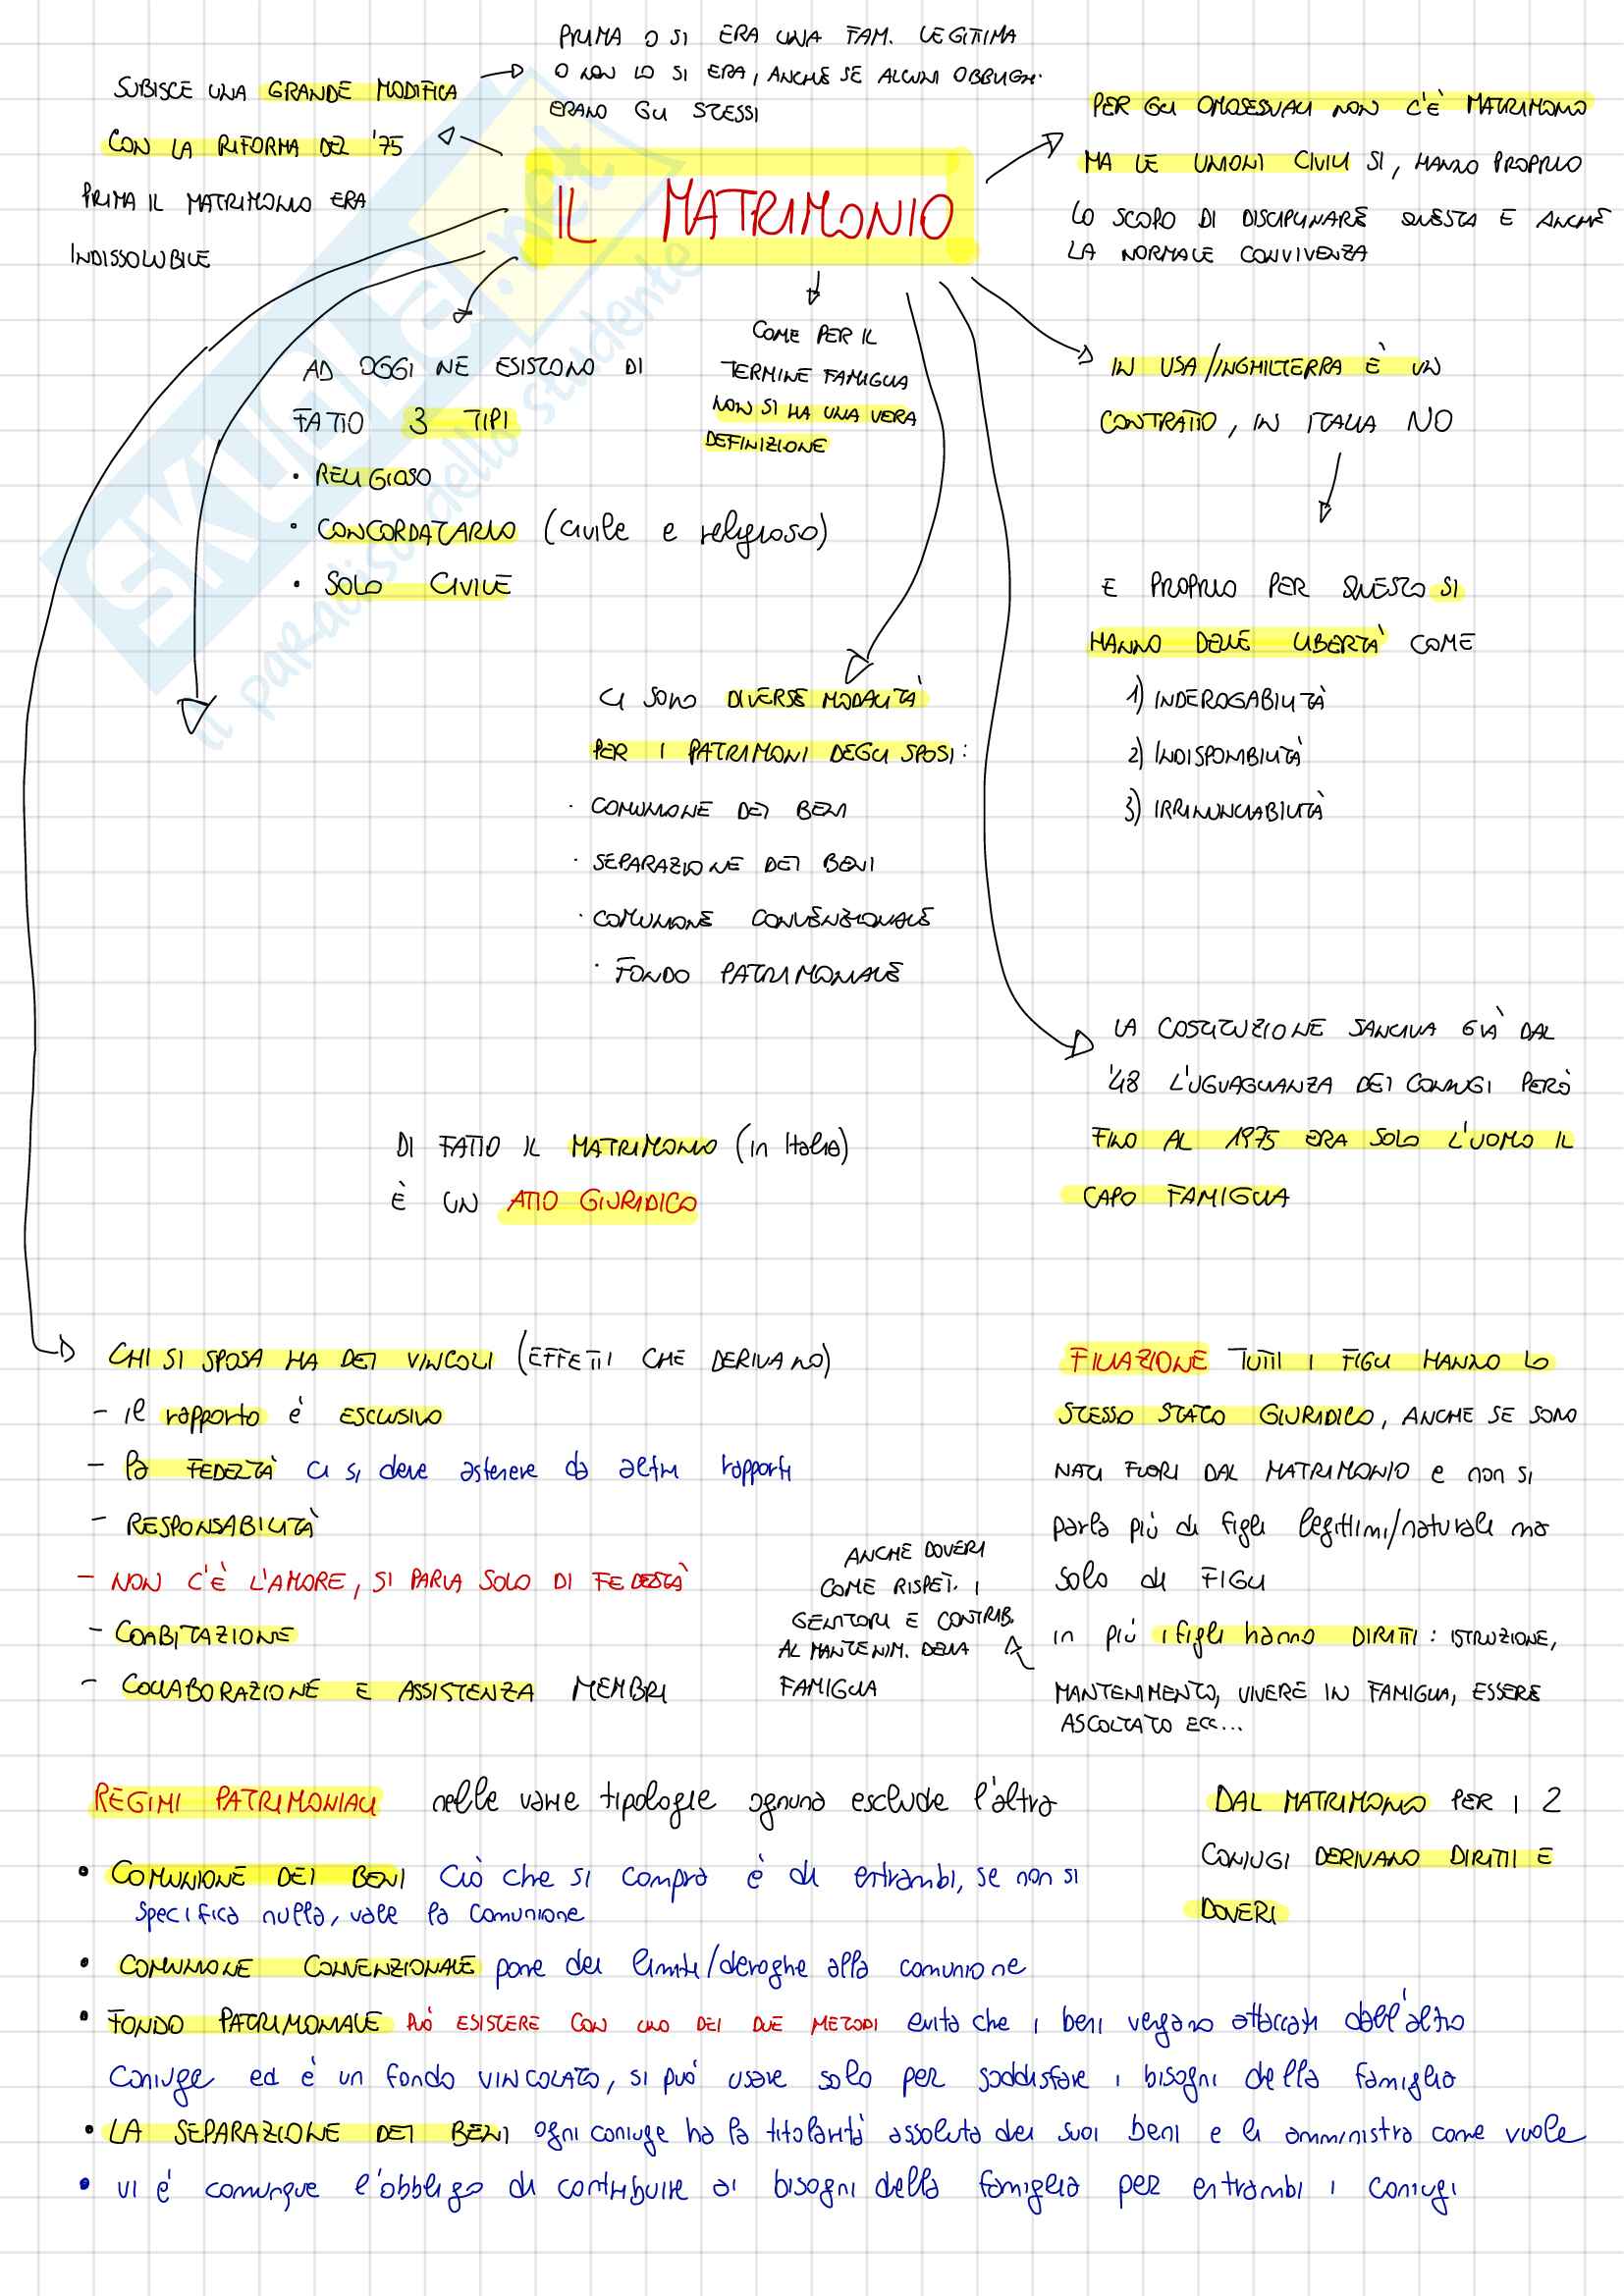 PRIMA O SI ERA UNA FAM. LEGITTIMA
O NON LO SI ERA, ANCHE SE ALCUNI OBBLIGHI
ERANO GLI STESSI
SUBISCE UNA GRANDE MODIFICA
CON LA RIFORMA DEL '75
PRIMA IL MATRIMONIO ERA
INDISSOLUBILE
IL MATRIMONIO
PER GLI OMOSESSUALI NON C'È MATRIMONIO
MA LE UNIONI CIVILI SI, HANNO PROPRIO
LO SCOPO DI DISCIPLINARE QUESTA E ANCHE
LA NORMALE CONVIVENZA
AD OGGI NE ESISTONO DI
FATTO 3 TIPI
• RELIGIOSO
• CONCORDATARIO (civile e religioso)
• SOLO CIVILE
COME PER IL
TERMINE FAMIGLIA
NON SI HA UNA VERA
DEFINIZIONE
IN USA/INGHILTERRA È UN
CONTRATTO, IN ITALIA NO
E PROPRIO PER QUESTO SI
HANNO DELLE LIBERTÀ COME
1) INDEROGABILITÀ
2) INDISPONIBILITÀ
3) IRRINUNCIABILITÀ
CI SONO DIVERSE MODALITÀ
PER I PATRIMONI DEGLI SPOSI:
· COMUNIONE DEI BENI
· SEPARAZIONE DEI BENI
· COMUNIONE CONVENZIONALE
· FONDO PATRIMONIALE
LA COSTITUZIONE SANCIVA GIÀ DAL
'48 L'UGUAGLIANZA DEI CONIUGI PERÒ
FINO AL 1975 ERA SOLO L'UOMO IL
CAPO FAMIGLIA
DI FATTO IL MATRIMONIO (in Italia)
È UN ATTO GIURIDICO
CHI SI SPOSA HA DEI VINCOLI (EFFETTI CHE DERIVANO)
- il rapporto è ESCLUSIVO
- la FEDELTÀ ci si deve astenere da altri rapporti
- RESPONSABILITÀ
- NON C'È L'AMORE, SI PARLA SOLO DI FEDELTÀ
- COABITAZIONE
- COLLABORAZIONE E ASSISTENZA MEMBRI
FILIAZIONE TUTTI I FIGLI HANNO LO
STESSO STATO GIURIDICO, ANCHE SE SONO
NATI FUORI DAL MATRIMONIO e non si
parla più di figli legittimi/naturali ma
solo di FIGLI
in più i figli hanno DIRITTI: ISTRUZIONE,
MANTENIMENTO, VIVERE IN FAMIGLIA, ESSERE
ASCOLTATO ECC...
ANCHE DOVERI
COME RISPET. I
GENITORI E CONTRIB.
AL MANTENIM. DELLA
FAMIGLIA
REGIMI PATRIMONIALI nelle varie tipologie ognuna esclude l'altra
• COMUNIONE DEI BENI Ciò che si compra è di entrambi, se non si
specifica nulla, vale la comunione
• COMUNIONE CONVENZIONALE pone dei limiti/deroghe alla comunione
• FONDO PATRIMONIALE PUÒ ESISTERE CON UNO DEI DUE METODI evita che i beni vengano attaccati dall'altro
coniuge ed è un fondo VINCOLATO, si può usare solo per soddisfare i bisogni della famiglia
• LA SEPARAZIONE DEI BENI ogni coniuge ha la titolarità assoluta dei suoi beni e li amministra come vuole
• vi è comunque l'obbligo di contribuire ai bisogni della famiglia per entrambi i coniugi
DAL MATRIMONIO PER I 2
CONIUGI DERIVANO DIRITTI E
DOVERI
SKUOLA.net
il paradiso dello studente